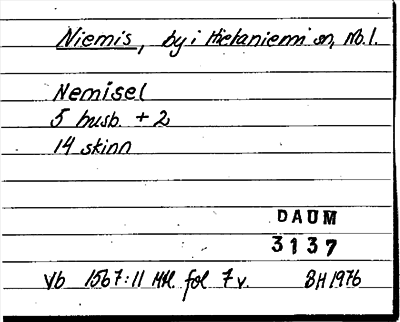 Niemis, by i Hietaniemi sn, Nb.l.
Nemisel
5 husb. + 2
14 skinn
DAUM
3137
Vb 1567:11 Mtl fol 7 v. BH 1976